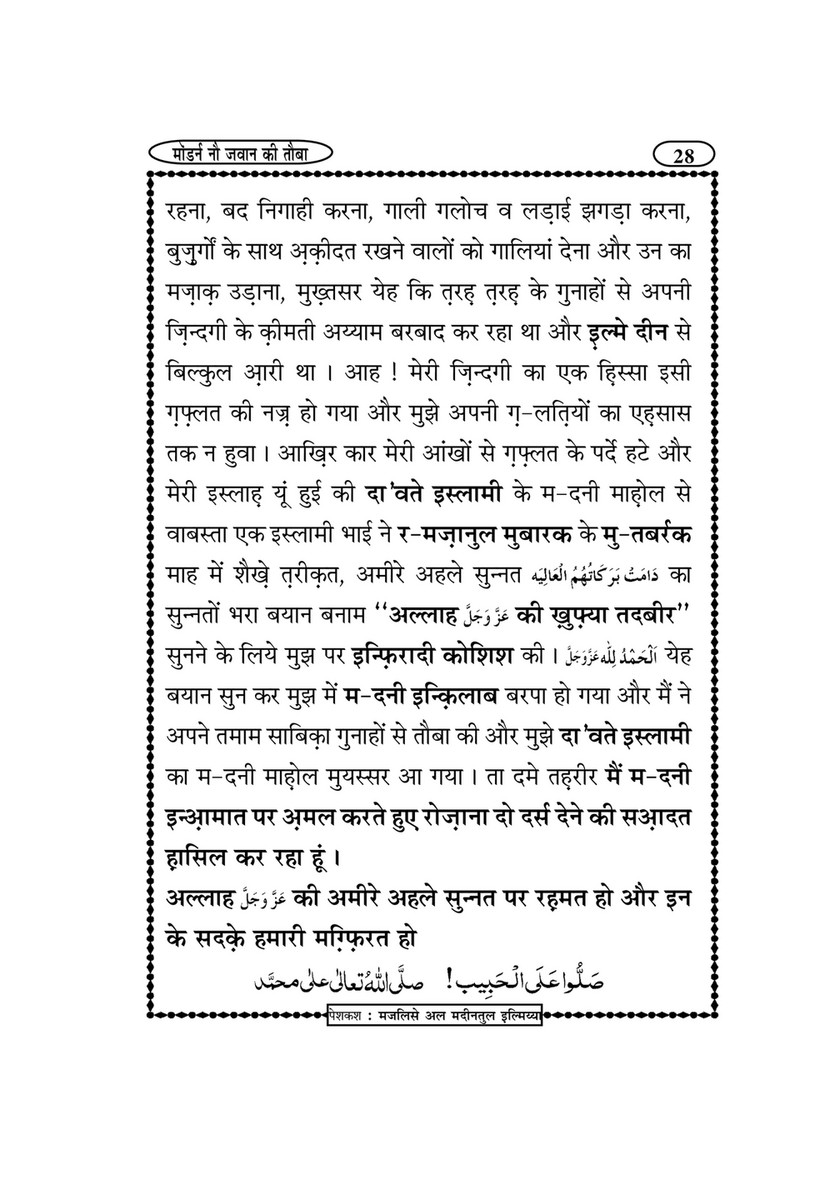 मॉडर्न नौ जवान की तौबा
28
रहना, बद निगाही करना, गाली गलोच व लड़ाई झगड़ा करना,
बुज़ुर्गों के साथ अ़क़ीदत रखने वालों को गालियां देना और उन का
मज़ाक़ उड़ाना, मुख़्तसर येह कि त़रह़ त़रह़ के गुनाहों से अपनी
ज़िन्दगी के क़ीमती अय्याम बरबाद कर रहा था और इ़ल्मे दीन से
बिल्कुल आ़री था । आह ! मेरी ज़िन्दगी का एक हि़स्सा इसी
ग़फ़्लत की नज़्र हो गया और मुझे अपनी ग़-लति़यों का एह़सास
तक न हुवा । आख़िर कार मेरी आंखों से ग़फ़्लत के पर्दे हटे और
मेरी इस्लाह़ यूं हुई की दा'वते इस्लामी के म-दनी माह़ोल से
वाबस्ता एक इस्लामी भाई ने र-मज़ानुल मुबारक के मु-तबर्रक
माह में शैख़े त़रीक़त, अमीरे अहले सुन्नत دَامَتْ بَرَكَاتُهُمُ الْعَالِيَه का
सुन्नतों भरा बयान बनाम ‘‘अल्लाह عَزَّوَجَلَّ की ख़ुफ़्या तदबीर’’
सुनने के लिये मुझ पर इन्फ़िरादी कोशिश की । اَلْحَمْدُ لِلّٰه عَزَّوَجَلَّ येह
बयान सुन कर मुझ में म-दनी इन्क़िलाब बरपा हो गया और मैं ने
अपने तमाम साबिक़ा गुनाहों से तौबा की और मुझे दा'वते इस्लामी
का म-दनी माह़ोल मुयस्सर आ गया । ता दमे तह़रीर मैं म-दनी
इन्आ़मात पर अ़मल करते हुए रोज़ाना दो दर्स देने की सआ़दत
ह़ासिल कर रहा हूं ।
अल्लाह عَزَّوَجَلَّ की अमीरे अहले सुन्नत पर रह़मत हो और इन
के सदक़े हमारी मग़्फ़िरत हो
صَلُّوا عَلَى الْحَبِيب! صلَّى اللهُ تعالىٰ علىٰ محمَّد
पेशकश : मजलिसे अल मदीनतुल इल्मिय्या